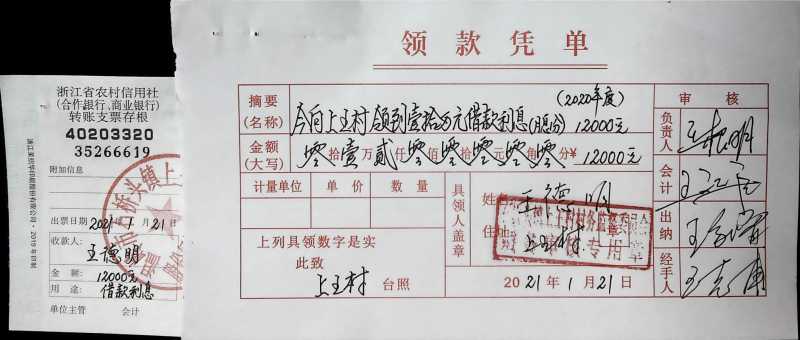 浙江省农村信用社
(合作银行、商业银行)
转账支票存根
40203320
35266619
附加信息
出票日期 2021年1月21日
收款人:
王德明
金 额: 12000元
用 途: 借款利息
单位主管 会计
领款凭单
摘要
(名称)
(2020年度)
今向上王村领到壹拾万元借款利息(月息1分) 12000元
金额
(大写)
零拾壹万贰仟零佰零拾零元零角零分¥12000元
计量单位 单价 数量
上列具领数字是实
此致
上王村 台照
具领人盖章
姓名 王德明
住址 上王村
2021年1月21日
审核
负责人
会计
出纳
经手人